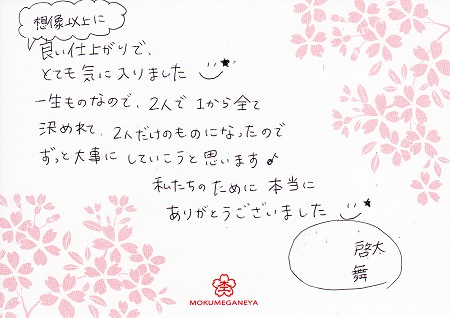 想像以上に
良い仕上がりで、
とても気に入りました
一生ものなので、2人で1から全て
決めれて、2人だけのものになったので
ずっと大事にしていこうと思います♪
私たちのために本当に
ありがとうございました
啓太
舞
杢
MOKUMEGANEYA